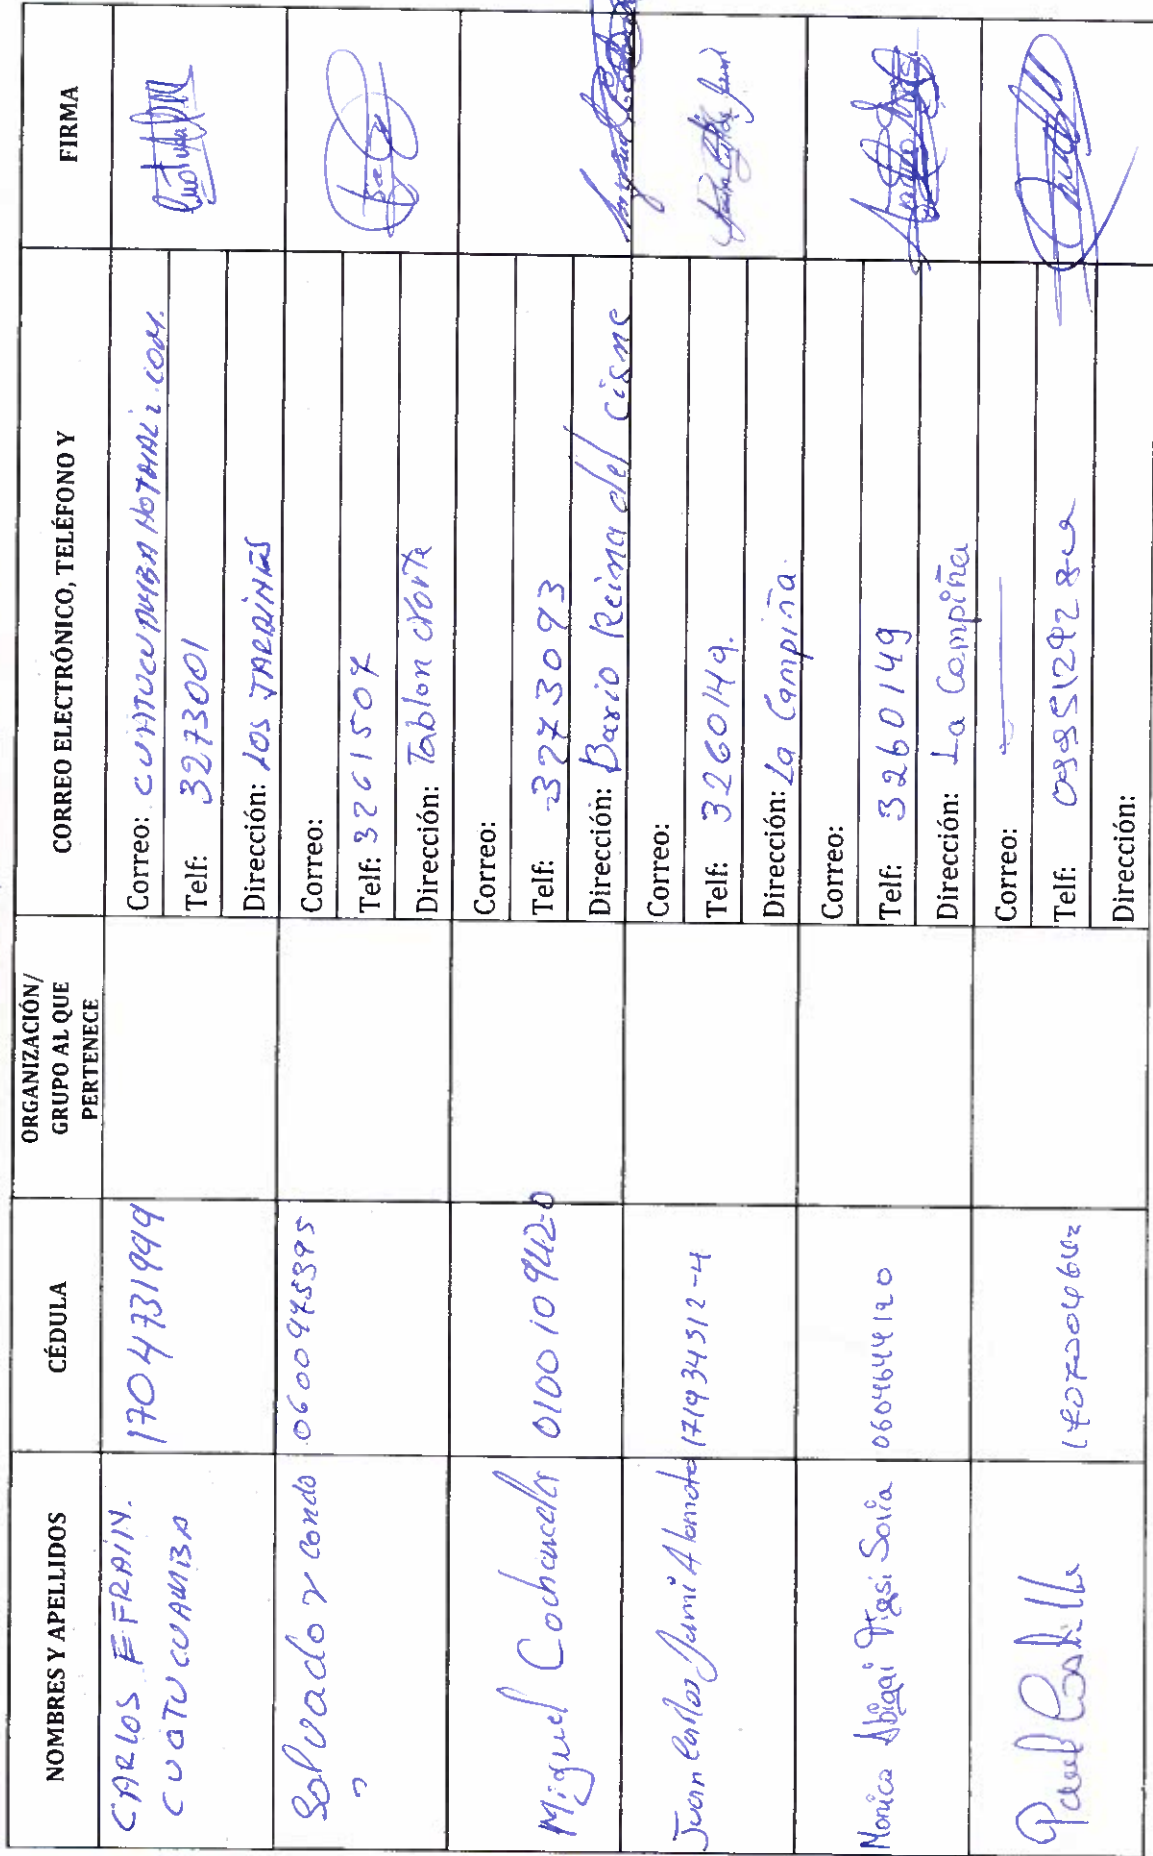 NOMBRES Y APELLIDOS
CÉDULA
ORGANIZACIÓN/
GRUPO AL QUE
PERTENECE
CORREO ELECTRÓNICO, TELÉFONO Y
FIRMA
CARLOS EFRAIN.
CUATUCUAMBA
1704731999
Correo: CUATUCUAMBA HOTMAIL. COM.
Telf: 3273001
Dirección: LOS JARDINES
Salvador Condo
0600975395
Correo:
Telf: 3261507
Dirección: Tablon Norte
Miguel
010010942-0
Correo:
Telf: 3273093
Dirección: Barrio Reina del Cisne
Juan Carlos Jami Alomoto
171934512-4
Correo:
Telf: 3260149.
Dirección: La Campiña.
Monica Abigai Soria
0604644120
Correo:
Telf: 3260149
Dirección: La Campiña
Correo:
Telf:
Dirección: